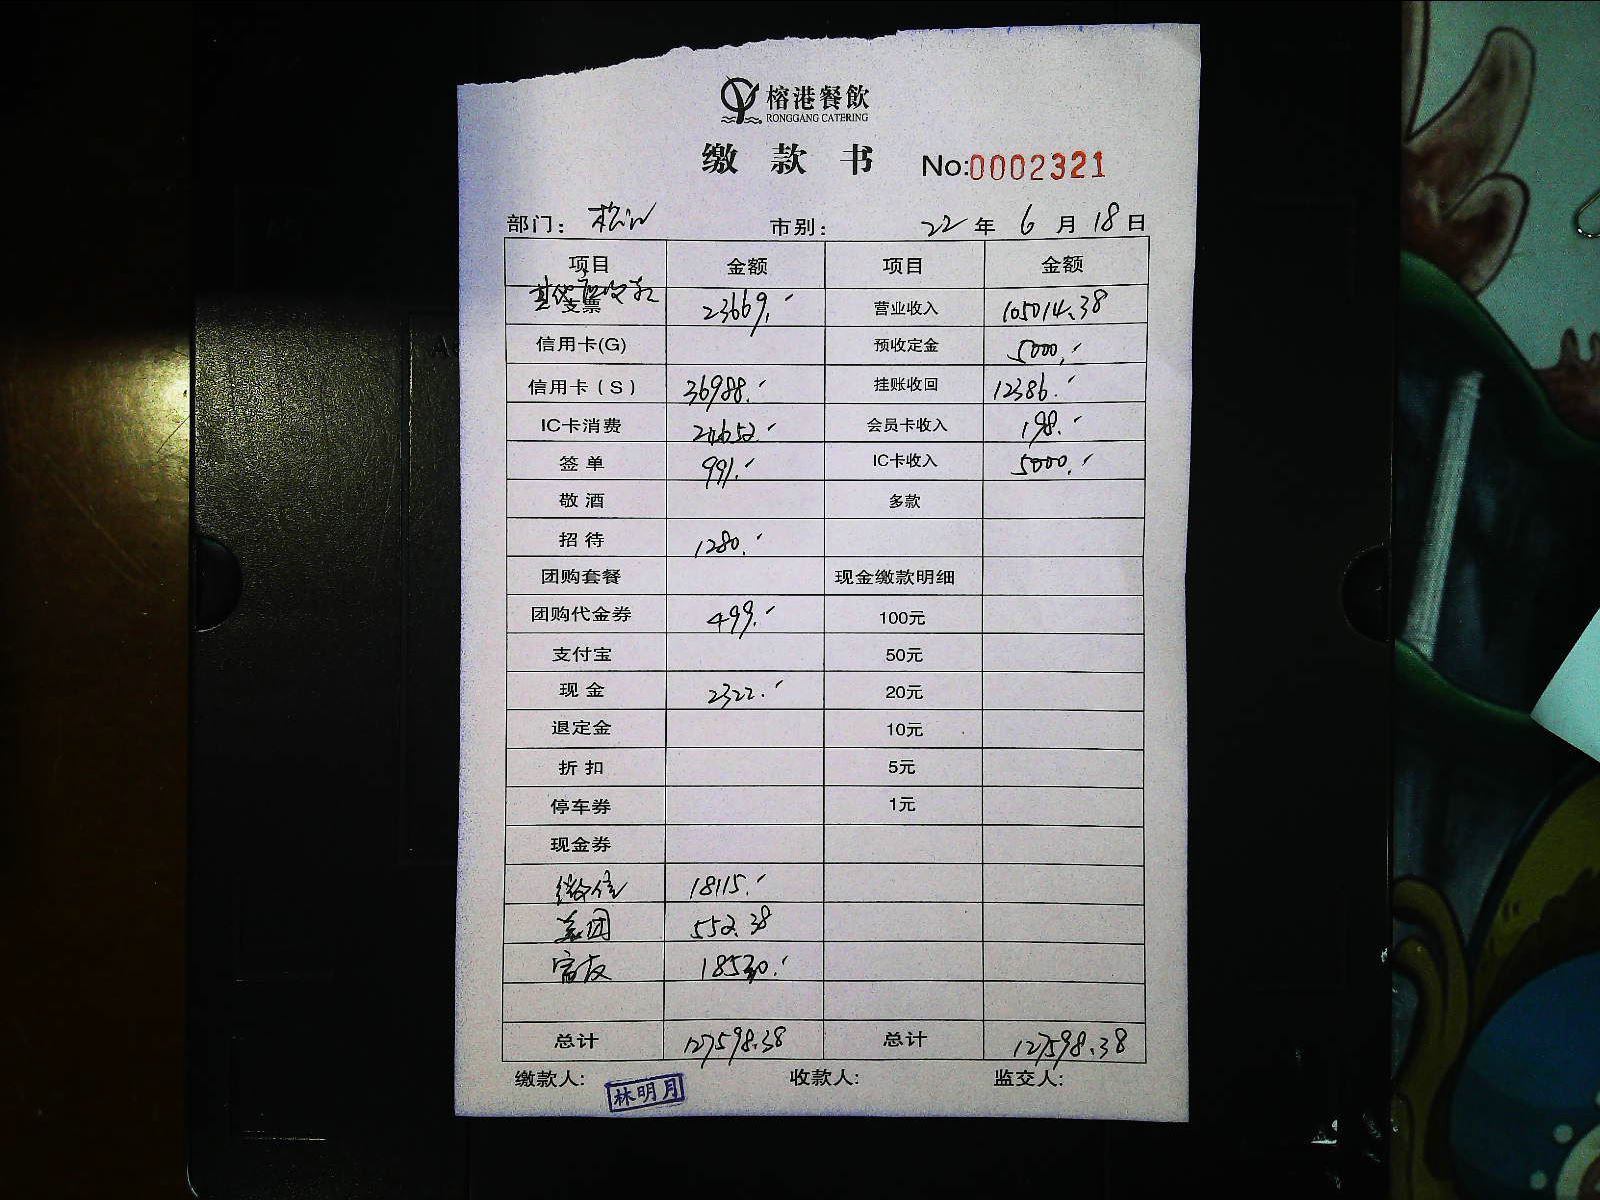 榕港餐飲
RONGGANG CATERING
缴款书 No:0002321
部门: 松江 市别: 22年 6月 18日
项目 金额 项目 金额
其他应收款
支票 23669. 营业收入 105014.38
信用卡(G) 预收定金 5000.
信用卡(S) 36988. 挂账收回 12386.
IC卡消费 24652. 会员卡收入 198.
签单 991. IC卡收入 5000.
敬酒 多款
招待 1280.
团购套餐 现金缴款明细
团购代金券 499. 100元
支付宝 50元
现金 2322. 20元
退定金 10元
折扣 5元
停车券 1元
现金券
18115.
美团 552.38
富友 18530.
总计 127598.38 总计 127598.38
缴款人: 林明月 收款人: 监交人: